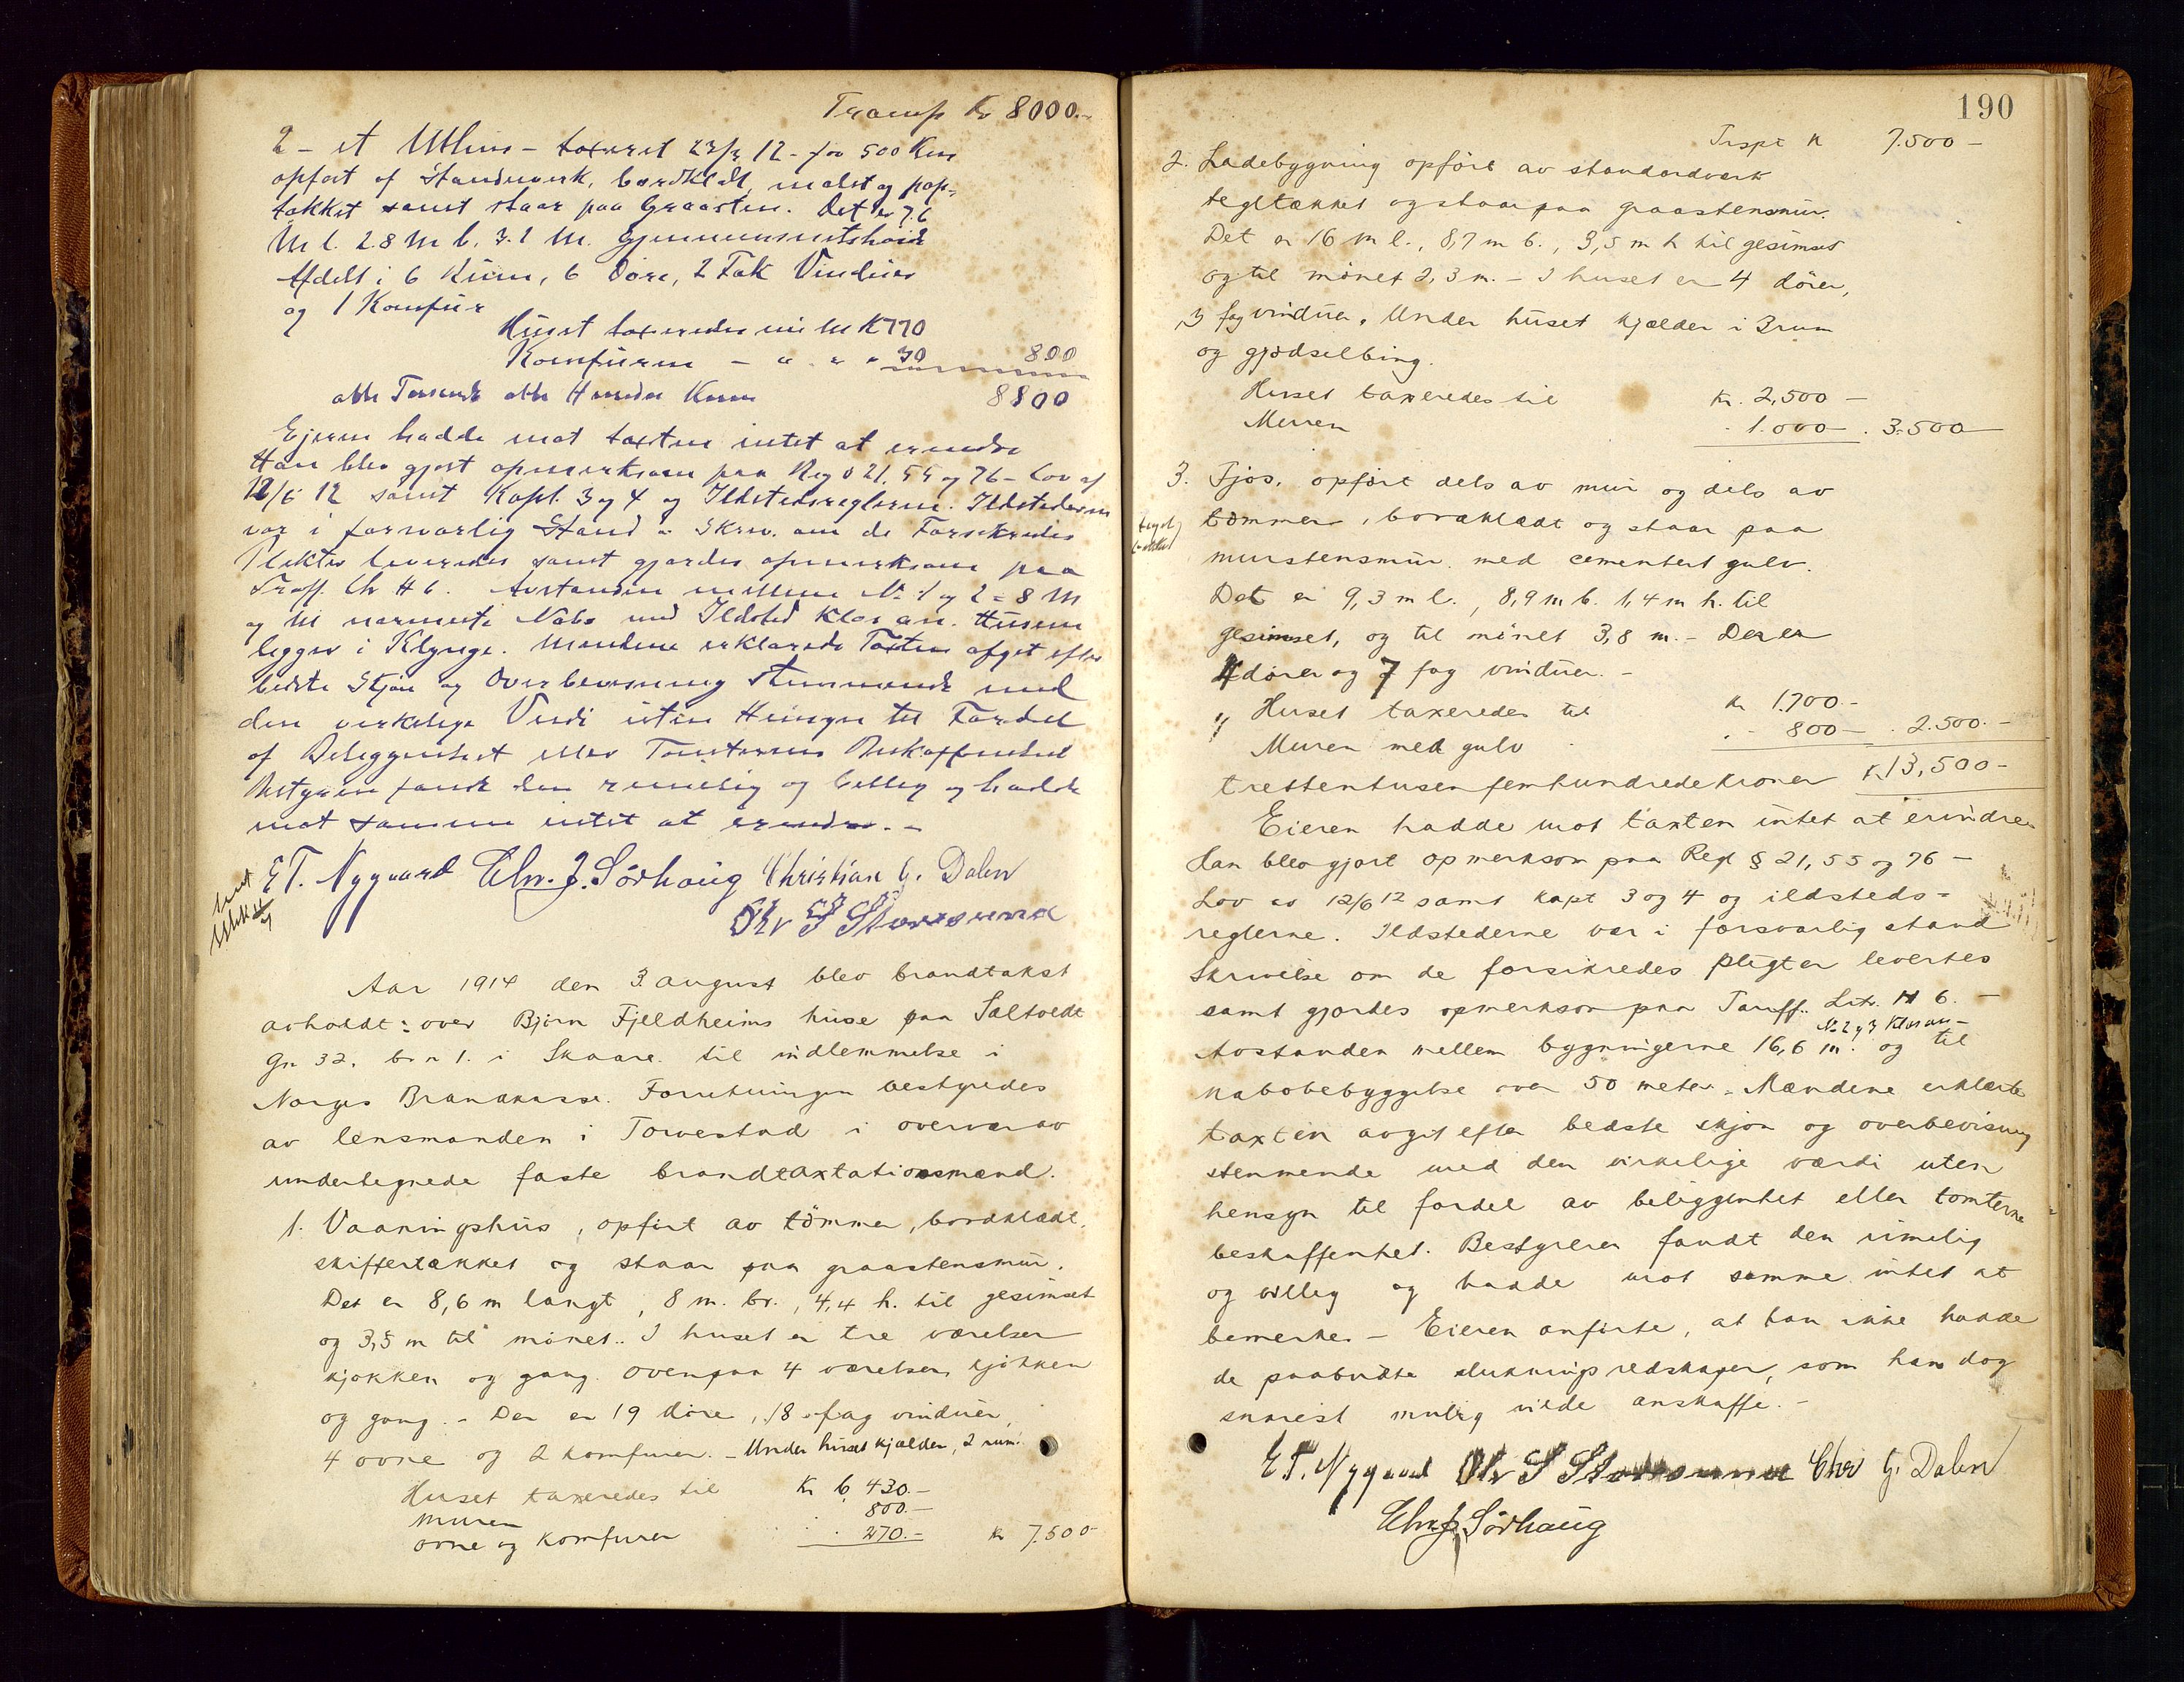 Transp Kr 8000.-
2 - et Uthus - taxeret 23/3 12 - for 500 Kr
opført af Standverk, bordkldt, malet og pap=
takket samt staar paa Graasten. Det er 7.6
M l. 2.8 M b. 3.2 M. Gjennemsnitshøide
Afdelt i 6 Rum, 6 Døre, 2 Fak Vinduer
og 1 Komfur
Huset taxeredes til K 770
Komfuren - " " " 30 800
otte Tusende otte Hundre Kroner 8800
Ejeren hadde mot taxten intet at erindre
Han blev gjort opmerksom paa Reg § 21, 55 og 76 - Lov af
12/6 12 samt Kapt. 3 og 4 og Ildstedsreglerne. Ildstederne
var i forsvarlig Stand - Skriv. om de Forsikredes
Plikter leveredes samt gjordes opmerksom paa
Tarff. Ltr H 6. Avstanden mellem No 1 og 2 = 8 M
og til nærmeste Nabo med Ildsted Klas an. Husene
ligger i Klynge. Mendene erklærede Taxten afget efter
bedste Skjøn og Overbevisning stemmende med
den verkelige Verdi uten Hensyn til Fordel
af Beliggenhet eller Tomternes Beskaffenhet
Bestyren fandt den rimelig og billig og hadde
mot samme intet at erindre. -
E T. Nygaard Chr. J. Sørhaug Christian G. Dalen
Ole S Storesund
Aar 1914 den 3. august blev brandtakst
avholdt: over Bjørn Fjeldheims huse paa Saltvedt
Gn 32. br n 1. i Skaare til indlemmelse i
Norges Brandkasse. Forretningen bestyredes
av lensmanden i Torvestad i overvær av
undertegnede faste brandtaxtationsmænd.
1. Vaaningshus, opført av tømmer, bordklædt,
skiffertækket og staar paa graastensmur.
Det er 8,6 m langt, 8 m. br., 4,4 h. til gesimset
og 3,5 m til mønet. I huset er tre værelser
kjøkken og gang. Ovenpaa 4 værelser, kjøkken
og gang. - Der er 19 døre, 18 fag vinduer,
4 ovne og 2 komfurer. - Under huset kjælder, 2 rum.
Huset taxeredes til Kr 6 430.-
Muren 800.-
ovne og komfurer 270.- kr 7.500-
190
Trspt K 7.500 -
2. Ladebygning opført av standardverk
tegltækket og staar paa graastensmur.
Det er 16 m l., 8,7 m b., 3,5 m h til gesimset
og til mønet 2,3 m. - I huset er 4 dører,
3 fag vinduer. Under huset kjælder i 3 rum
og gjødselbing.
Huset taxeredes til Kr. 2,500 -
Muren 1.000 - . 3.500
3. Fjøs, opført dels av mur og dels av
tømmer, bordklædt og staar paa
murstensmur med cementert gulv.
Det er 9,3 m l., 8,9 m b. 1,4 m h. til
gesimset, og til mønet 3,8 m. - Der er
4 dører og 7 fag vinduer. -
Huset taxeredes til Kr 1.700.-
Muren med gulv 800 - . 2.500.-
trettentusenfemhundredekroner Kr 13,500-
Eieren hadde mot taxten intet at erindre
Han blev gjort opmerksom paa Regl § 21, 55 og 76 -
Lov av 12/6 12 samt kapt 3 og 4 og ildsteds=
reglerne. Ildstederne var i forsvarlig stand
Skrivelse om de forsikredes pligter levertes
samt gjordes opmerksom paa Tarff. Litr. H 6. -
No 2 og 3 Klas an -
Avstanden mellem bygningerne 16,6 m. og til
nabobebyggelse over 50 meter. Mændene erklærte
taxten avgit efter bedste skjøn og overbevisning
stemmende med den virkelige værdi uten
hensyn til fordel av beliggenhet eller tomterne=
beskaffenhet. Bestyreren fandt den rimelig
og billig og hadde mot samme intet at
bemerke. - Eieren anførte, at han ikke hadde
de paabudte slukningsredskaper, som han dog
snarest mulig vilde anskaffe. -
E T. Nygaard Ole S Storesund Chr G. Dalen
Chr. J. Sørhaug